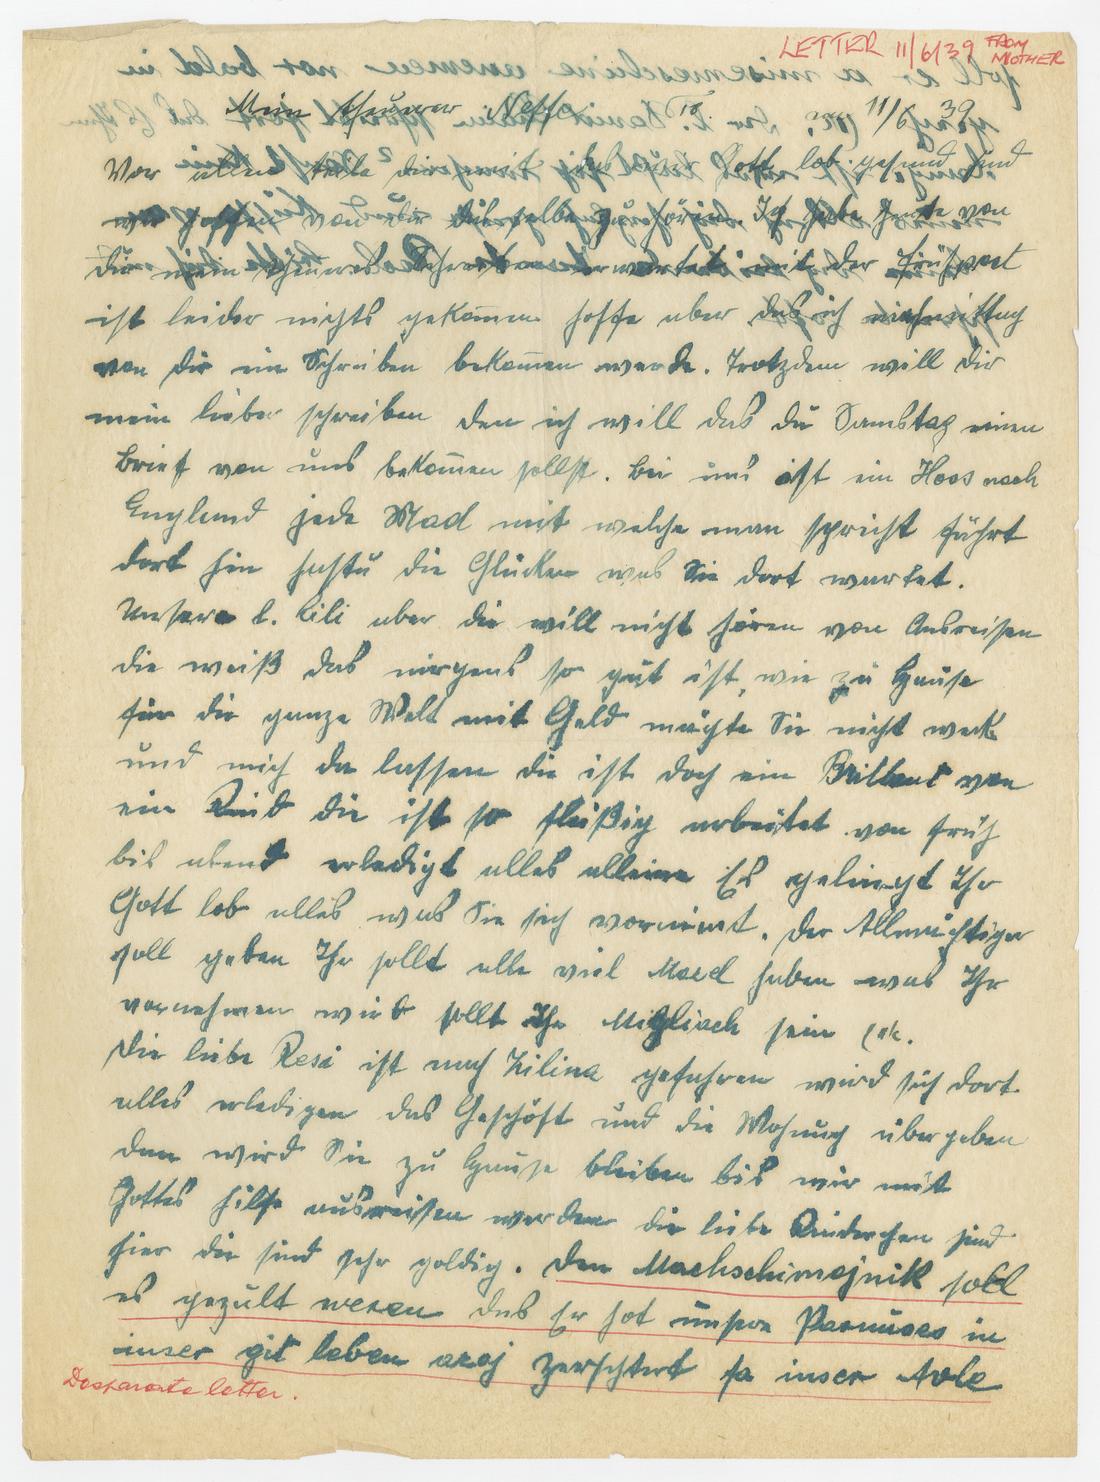 LETTER 11/6/39 FROM MOTHER
Mein theurer 11/6 39
Vor allem teile dir mit das Gott lob gesund sind
wir hoffen von dir dasselbe zu hören. Ich habe heute von
dir mein theueres Schreiben erwartet mit der Frühpost
ist leider nichts gekom̅en hoffe aber das ich nachmittag
von dir ein Schreiben bekom̅en werde. Trotzdem will dir
mein lieber schreiben den ich will das du Samstag einen
Brief von uns bekom̅en sollst. Bei uns ist ein Hoos nach
England jede Mad mit welche man spricht fährt
dort hin hastu die Glicken was Sie dort wartet.
Unsere l. Lili aber die will nicht hören von Ausreisen
die weiß das nirgens so gut ist, wie zu Hause
für die ganze Welt mit Geld möchte Sie nicht weck
und mich da lassen die ist doch ein Brillant von
ein Kind die ist so fleißig arbeitet von früh
bis abend erledigt alles alleine Es gelingt Ihr
Gott lob alles was Sie sich vornimt. Der Allmächtiger
soll geben Ihr sollt alle viel Masel haben was Ihr
vornehmen wird sollt Ihr Mazliach sein
Die liebe Resi ist nach Zilina gefahren wird sich dort
alles erledigen das Geschäft und die Wohnung übergeben
dan wird Sie zu Hause bleiben bis wir mit
Gottes hilfe ausreisen werden die liebe Kinderchen sind
hier die sind sehr goldig. Den Machschimojnik soll
es gezalt weren das Er hot unsere Parnuses in
inser git leben azoj zerschtert fa inser Avle
Desparate letter.